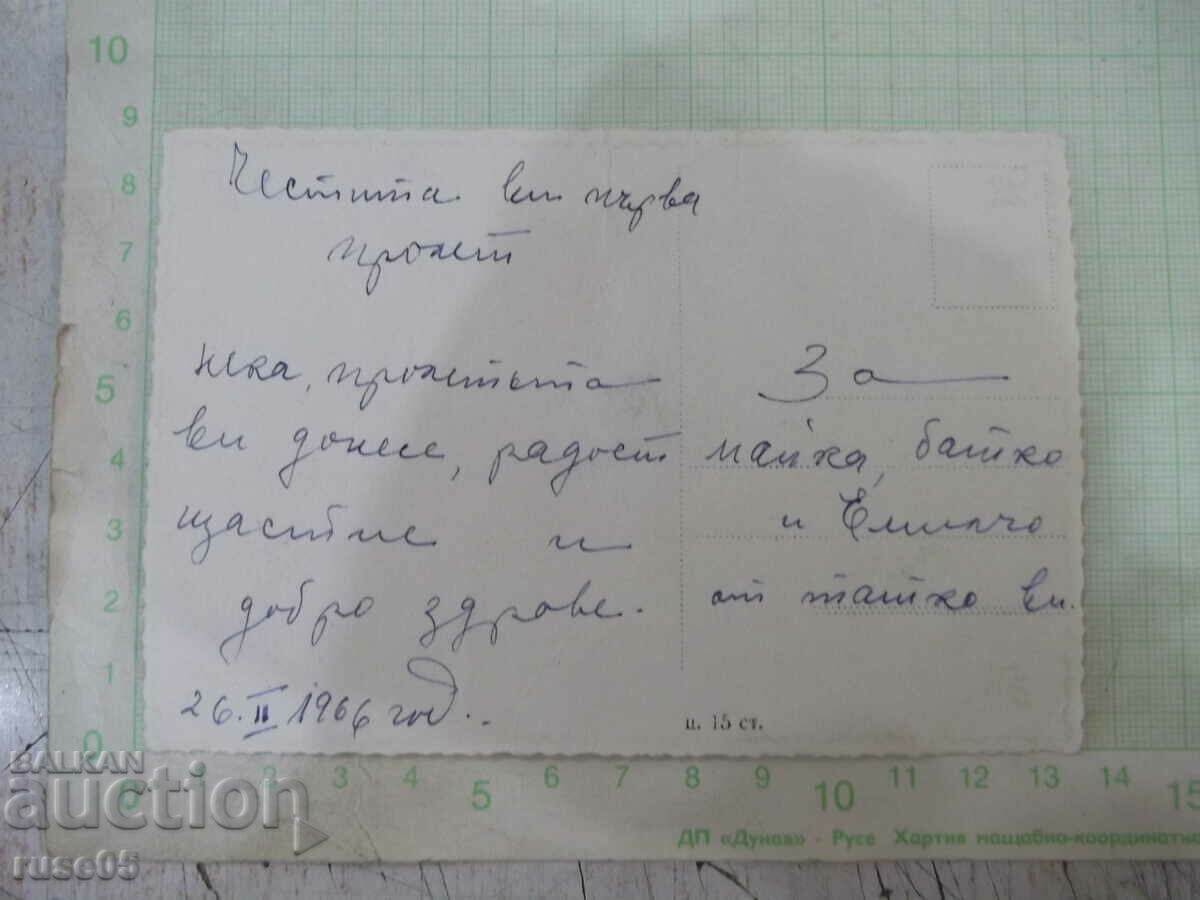 Честита ви първа
пролет
Нека, пролетта
ви донесе, радост
щастие и
добро здраве.
26. II 1966 год..
За
майка, батко
и Емилчо
от татко ви.
ц. 15 ст.
10
9
8
7
6
5
4
3
2
1
0
2 3 4 5 6 7 8 9 10 11 12 13 14 15
ДП «Дунав» - Русе Хартия мащабно-координатна
BALKAN
auction
ruse05